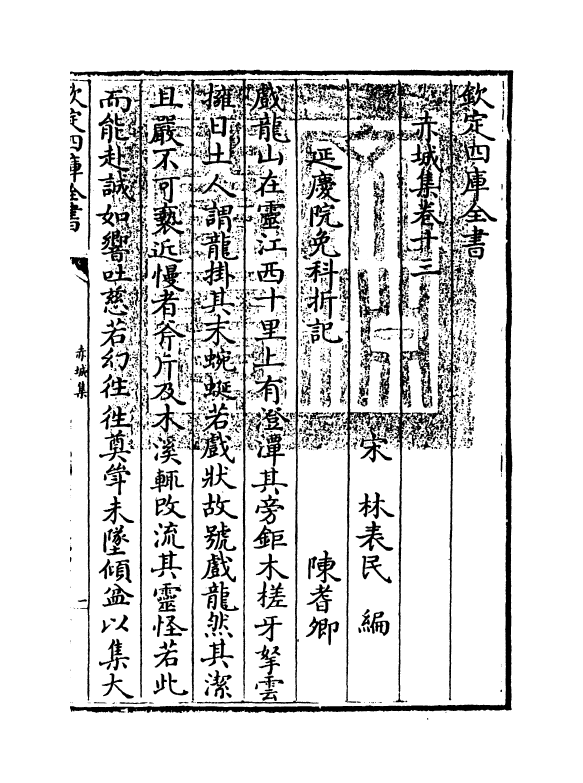 欽定四庫全書
赤城集卷十三
宋 林表民 編
延慶院免科折記 陳耆卿
戲龍山在靈江西十里上有澄潭其旁鉅木槎牙拏雲
擁日土人謂龍掛其末蜿蜒若戲狀故號戲龍然其潔
且嚴不可褻近慢者斧斤及木溪輒改流其靈怪若此
而能赴誠如響吐慈若幻往往奠斝未墜傾盆以集大
欽定四庫全書
赤城集
一